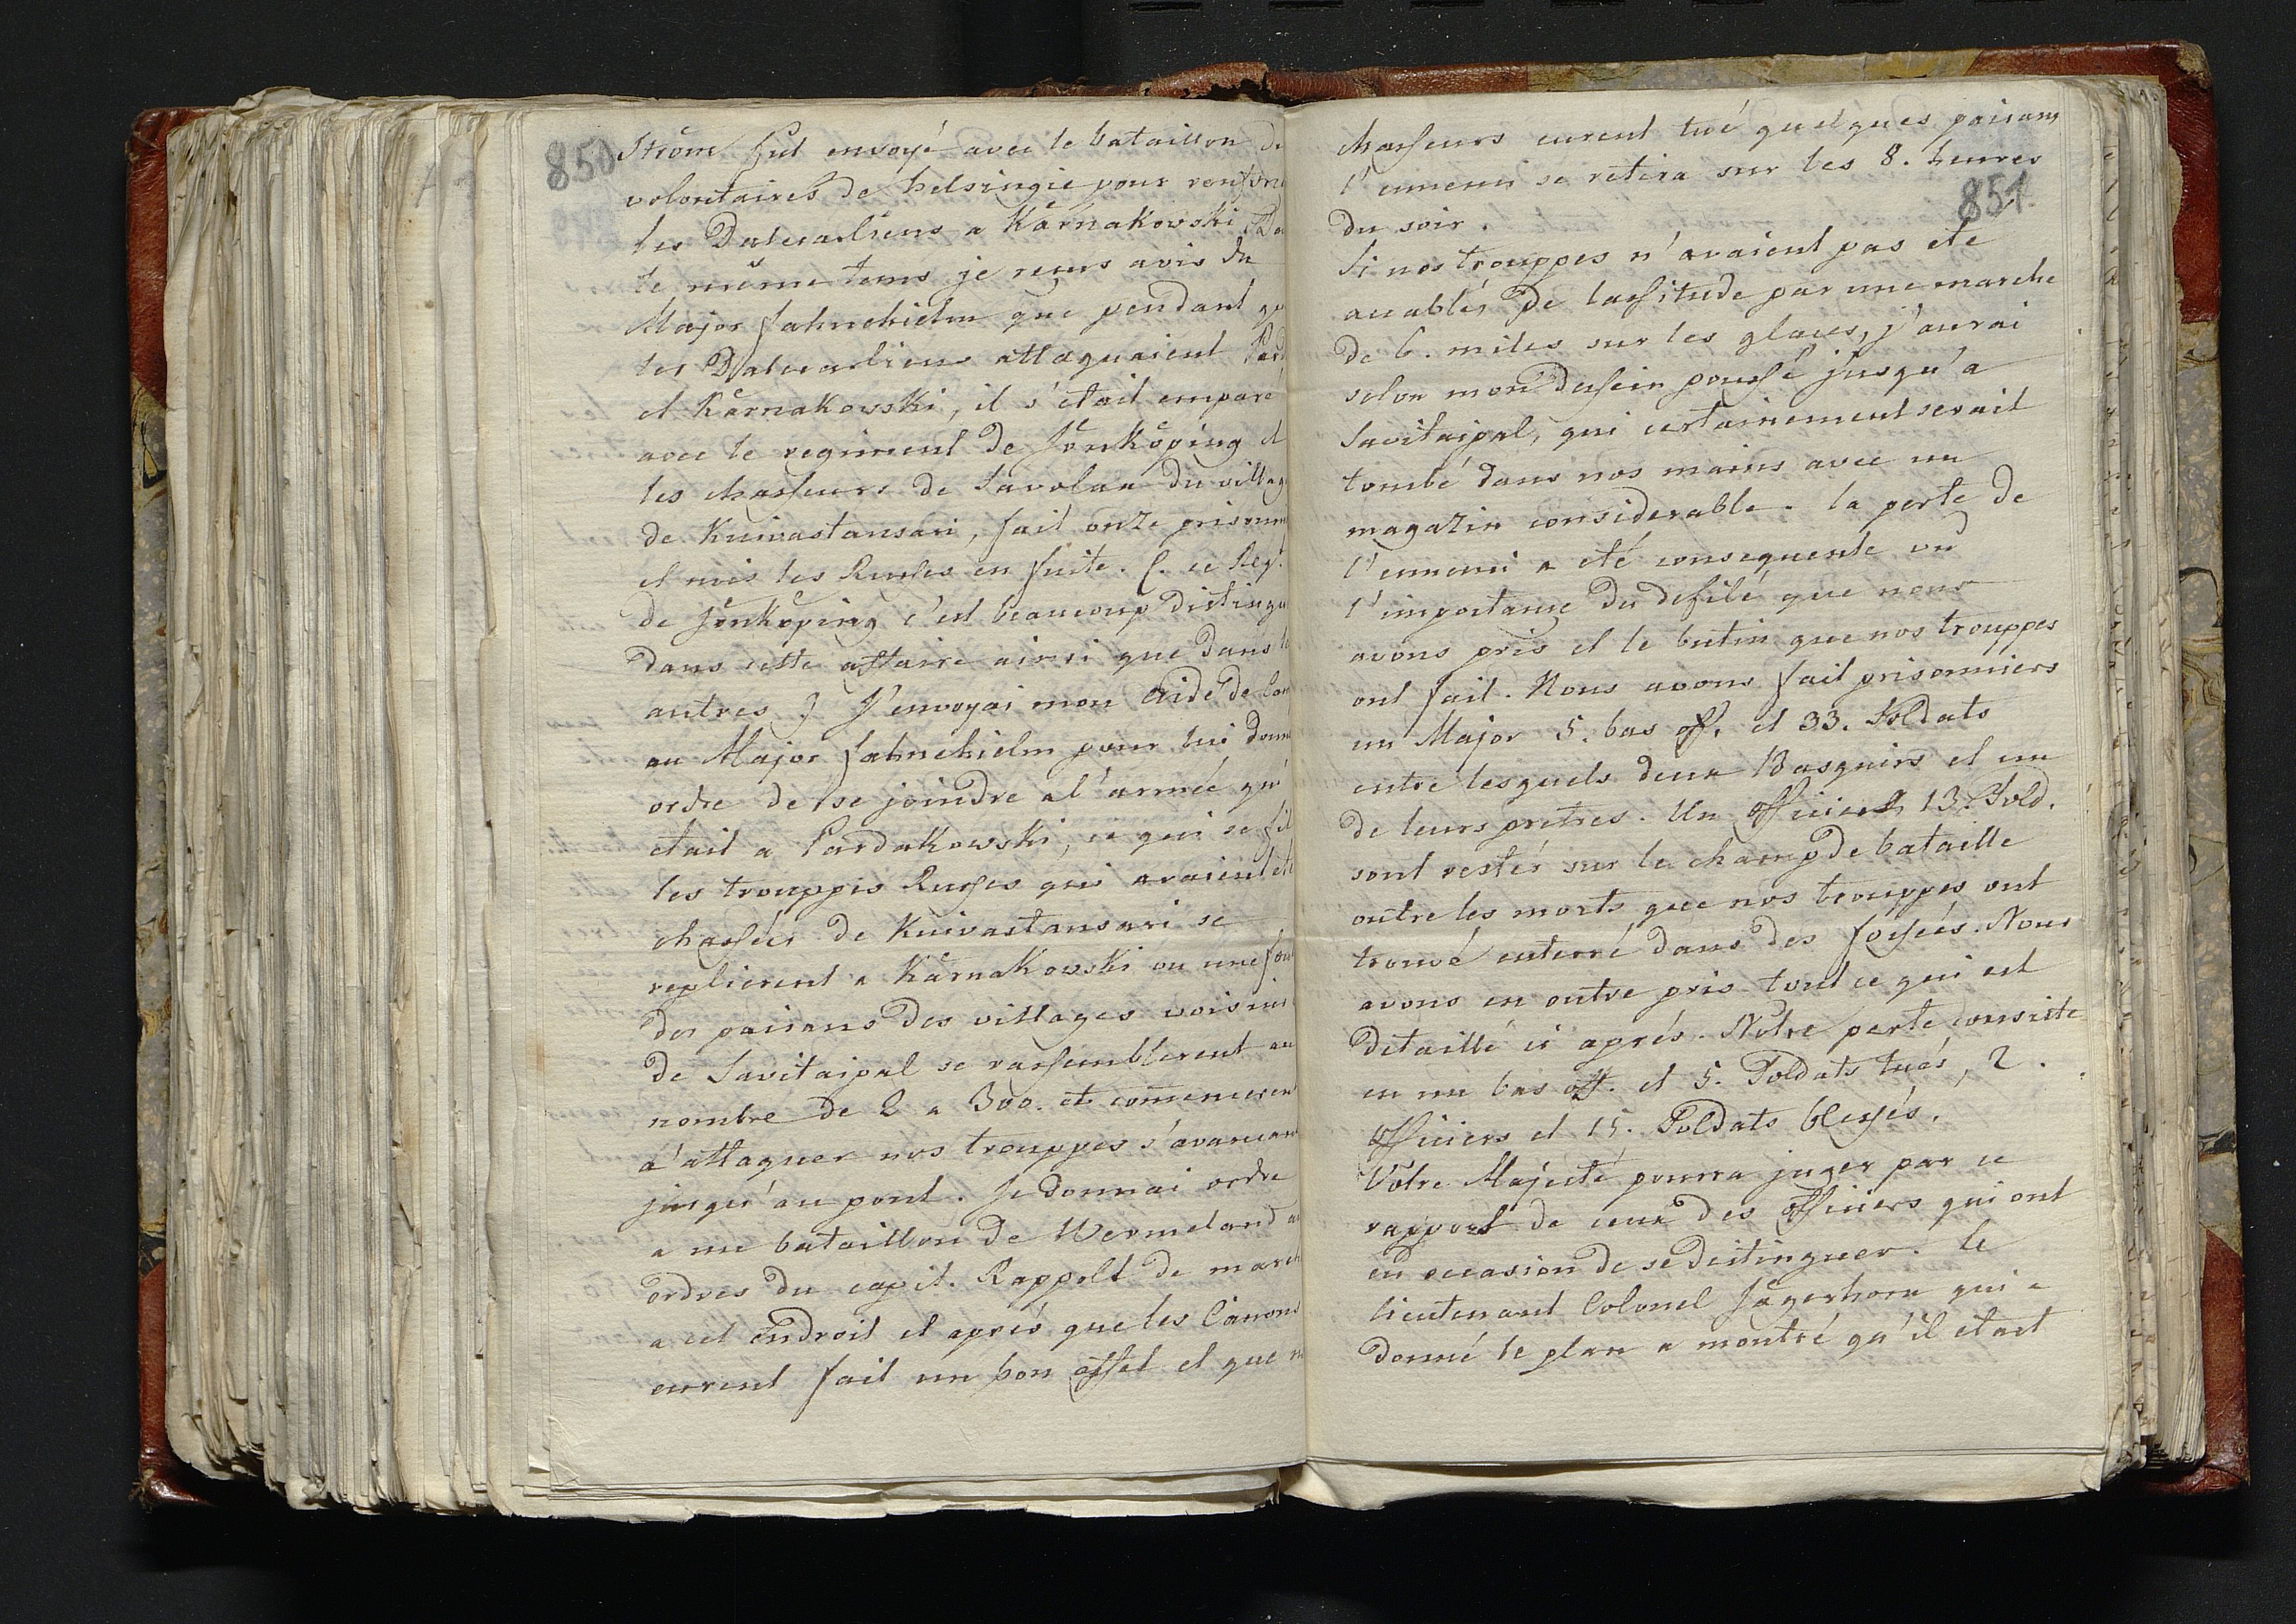 850
Ström fut envoyé avec le bataillon de
volontaires de helsingie pour renforc
les Dalecarliens a Kärnakowski. Da
le même tems je reçus avis du
Major Jahnehielm que pendant qu
les Dalecarliens attaquaient Pard
et Kärnakowski, il s'etait emparé
avec le regiment de Jönköping et
les chasseurs de Savolax du villag
de Kuivastansari, fait onze prisonn
et mis les Russes en fuite. (. ce Reg.t
de Jönköping c'est beaucoup distingu
dans cette affaire ainsi que dans l
autres ) J'envoyai mon Aide de Cam
au Major Jahnehielm pour lui donn
ordre de se joindre a l'armée qui
etait a Pardakowski, ce qui se fit
les trouppes Russes qui avaient eté
chassées de Kuivastansari se
replierent a Kärnakowski ou une fou
des paisans des villages voisins
de Savitaipal se rassemblerent au
nombre de 2 a 300. et comencerent
a'attaquer nos trouppes s'avancant
jusqu'au pont. Je donnai ordre
a un bataillon de Wermeland au
ordres du capit. Rappolt de march
a cet endroit et aprés que les Canons
eurent fait un bon effet et que n
chasseurs eurent tué quelques paisans
l'ennemi se retira sur les 8. heures
du soir.
851.
Si nos trouppes n'avaient pas eté
accablés de lassitude par une marche
de 6. miles sur les glaces, j'aurai
selon mon dessein poussé jusqu'a
Savitaipal, qui certainement serait
tombé dans nos mains avec un
magazin considerable. la perte de
l'ennemi a eté consequente vu
l'importance du defilé que nous
avons pris et le butin que nos trouppes
ont fait. Nous avons fait prisonniers
un Major 5. bas off. et 33. Soldats
entre lesquels deux Basquirs et un
de leurs pretres. Un officier, 13. Sold.
sont restés sur le champ de bataille
outre les morts que nos trouppes ont
trouvé enterré dans des fossées. Nous
avons en outre pris tout ce qui est
detaillé ci aprés. Nôtre perte consiste
en un bas off. et 5. Soldats tués, 2.
officiers et 15. Soldats blessés.
Vôtre Majesté pourra juger par ce
rapport de ceux des officiers qui ont
eu occasion de se distinguer. le
lieutenant Colonel Jägerhorn qui a
donné le plan a montré qu'il etait